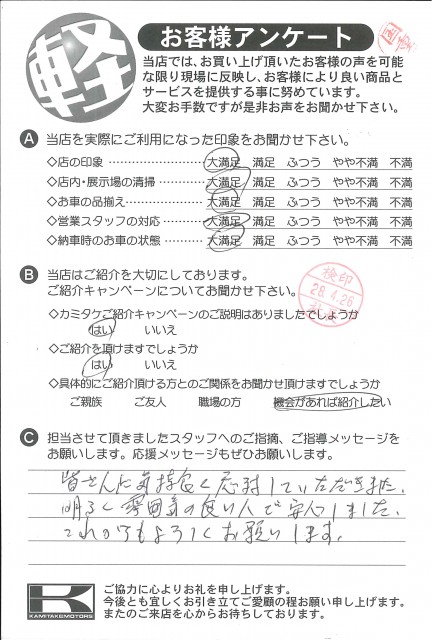 軽
お客様アンケート
当店では、お買い上げ頂いたお客様の声を可能
な限り現場に反映し、お客様により良い商品と
サービスを提供する事に努めています。
大変お手数ですが是非お声をお聞かせ下さい。
A 当店を実際にご利用になった印象をお聞かせ下さい。
◇店の印象 ………………… 大満足 満足 ふつう やや不満 不満
◇店内・展示場の清掃 ………… 大満足 満足 ふつう やや不満 不満
◇お車の品揃え ……………… 大満足 満足 ふつう やや不満 不満
◇営業スタッフの対応 ………… 大満足 満足 ふつう やや不満 不満
◇納車時のお車の状態 ………… 大満足 満足 ふつう やや不満 不満
B 当店はご紹介を大切にしております。
ご紹介キャンペーンについてお聞かせ下さい。
検印
28.4.26
◇カミタケご紹介キャンペーンのご説明はありましたでしょうか
はい いいえ
◇ご紹介を頂けますでしょうか
はい いいえ
◇具体的にご紹介頂ける方とのご関係をお聞かせ頂けますでしょうか
ご親族 ご友人 職場の方 機会があれば紹介したい
C 担当させて頂きましたスタッフへのご指摘、ご指導メッセージを
お願いします。応援メッセージもぜひお願いします。
皆さんに気持良く応対していただきました。
明るく雰囲気の良い人で安心しました。
これからもよろしくお願いします。
K
KAMITAKEMOTORS
ご協力に心よりお礼を申し上げます。
今後とも宜しくお引き立てご愛顧の程お願い申し上げます。
またのご来店を心からお待ちしております。